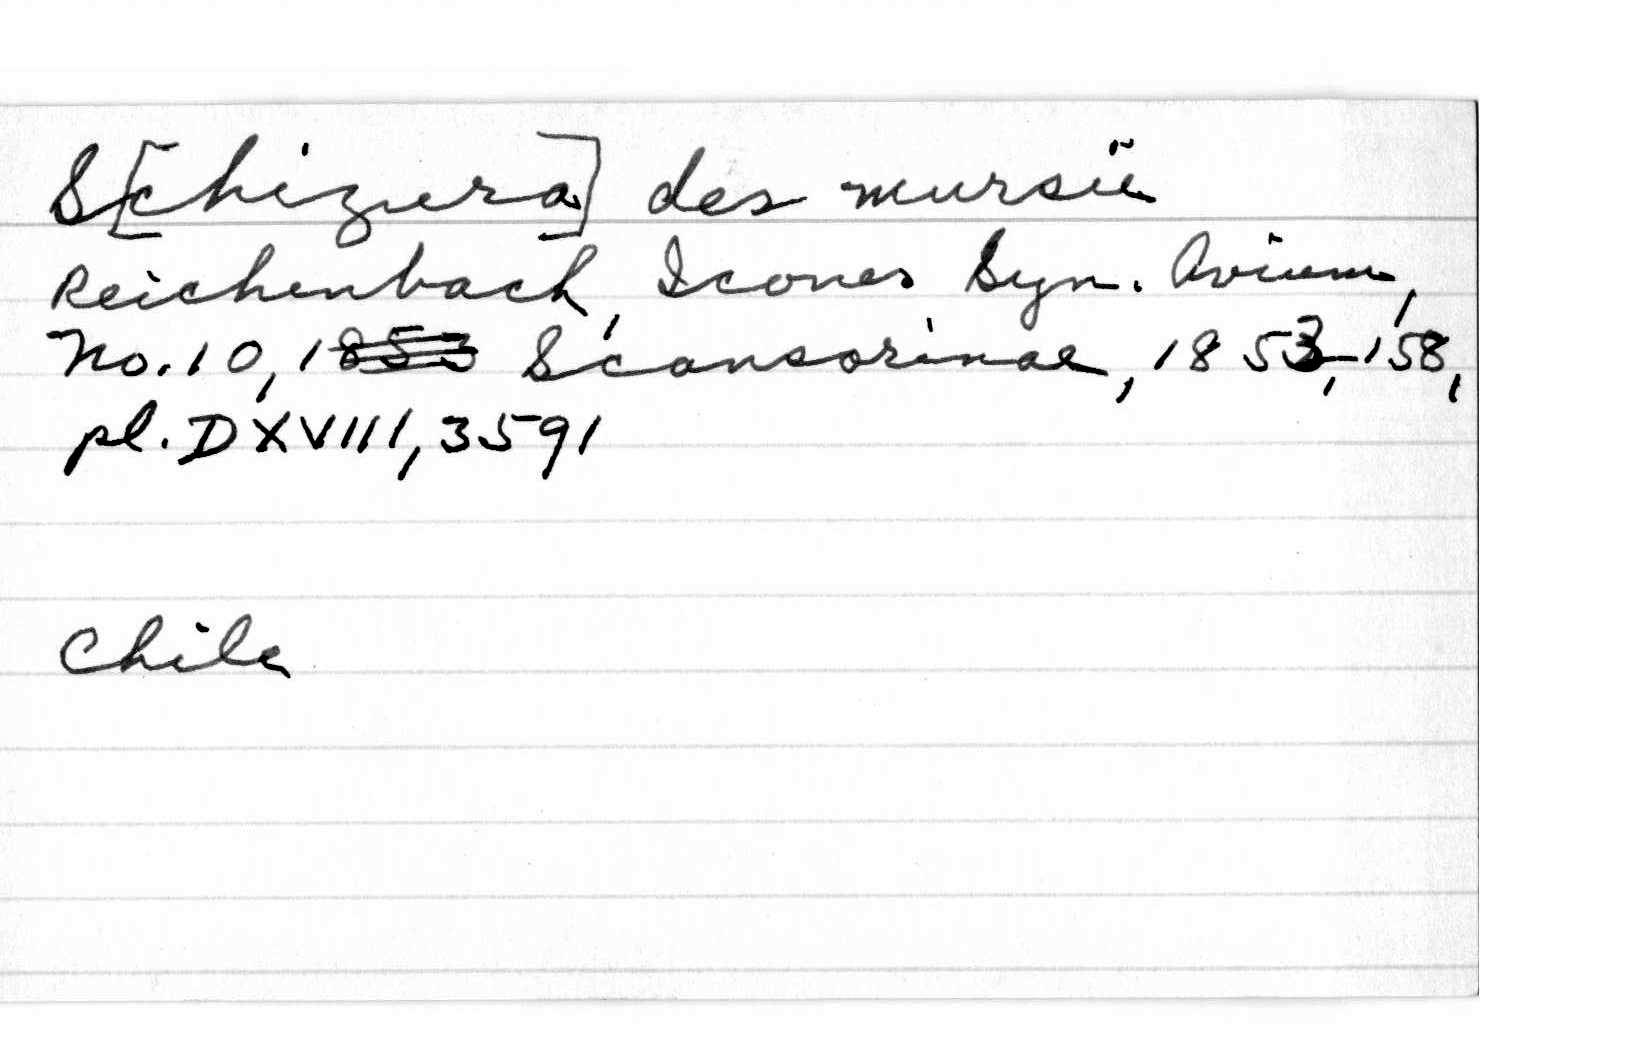 S[chizura] des mursii
Reichenbach, Icones Syn. Avium,
No. 10, 1853 Scansorinae, 1853, 158,
pl. DXVIII, 3591
Chile